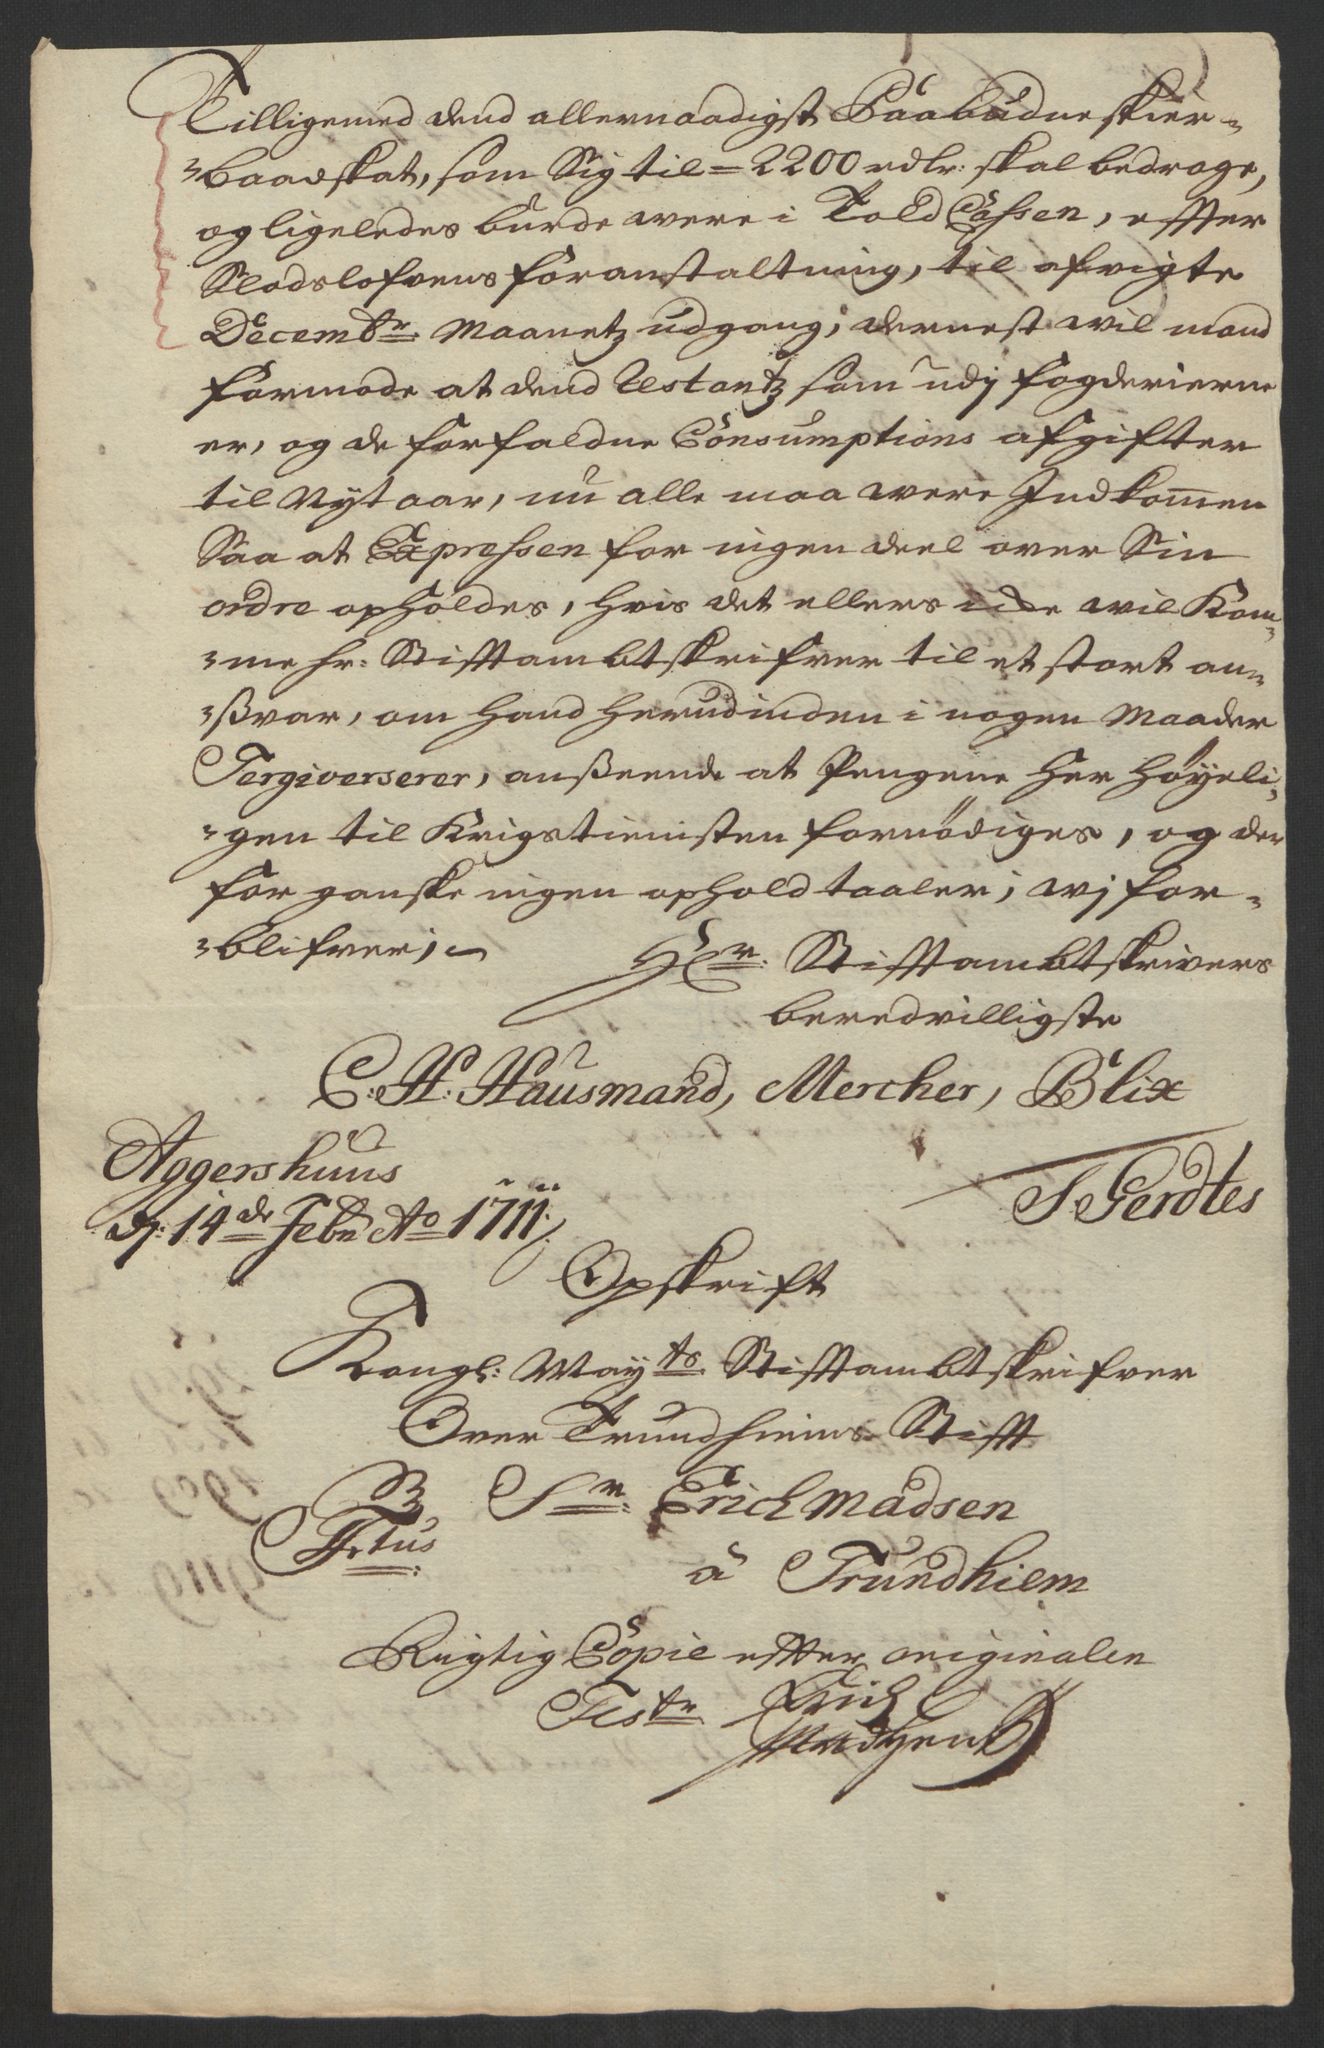 Tilligemed dend allernaadigst Paabudne skier-
baadskat, som Sig til = 2200 rdlr: skal bedrage,
og ligeledes burde were i Told Cassen, effter
Slodslofvens foranstaltning, til afvigte
Decembr: Maanetz udgang; dernest wil mand
formode at dend Restantz som udj fogderierne
er, og de forfaldne Consumptions afgifter
til Nyt aar, nu alle maa were Indkommen
Saa at Expressen for ingen deel over Sin
ordre opholdes, hvis det ellers icke wil Kom-
-me hr: Stifftambtskrifver til et stort an-
-ßvar, om hand herudinden i nogen Maader
Tergiverserer, anßeende at Pengene her höyeli-
-gen til Krigstienisten fornödiges, og der
for ganske ingen ophold taaler; wj for-
-blifver;
Hr. Stifftambtskrivers
beredvilligste
C: H: Hausmand, Mercher, Blix
Aggershuus
d: 14de Febr Ao 1711.
S Gerdtes
Opskrift
Kongl: Mayts Stifftambtskrifver
Over Trundhiems Stifft
Sr. Erich Madsen
Frtus
â Trundhiem
Rigtig Copie effter originalen
Tester Erich
Madhsen